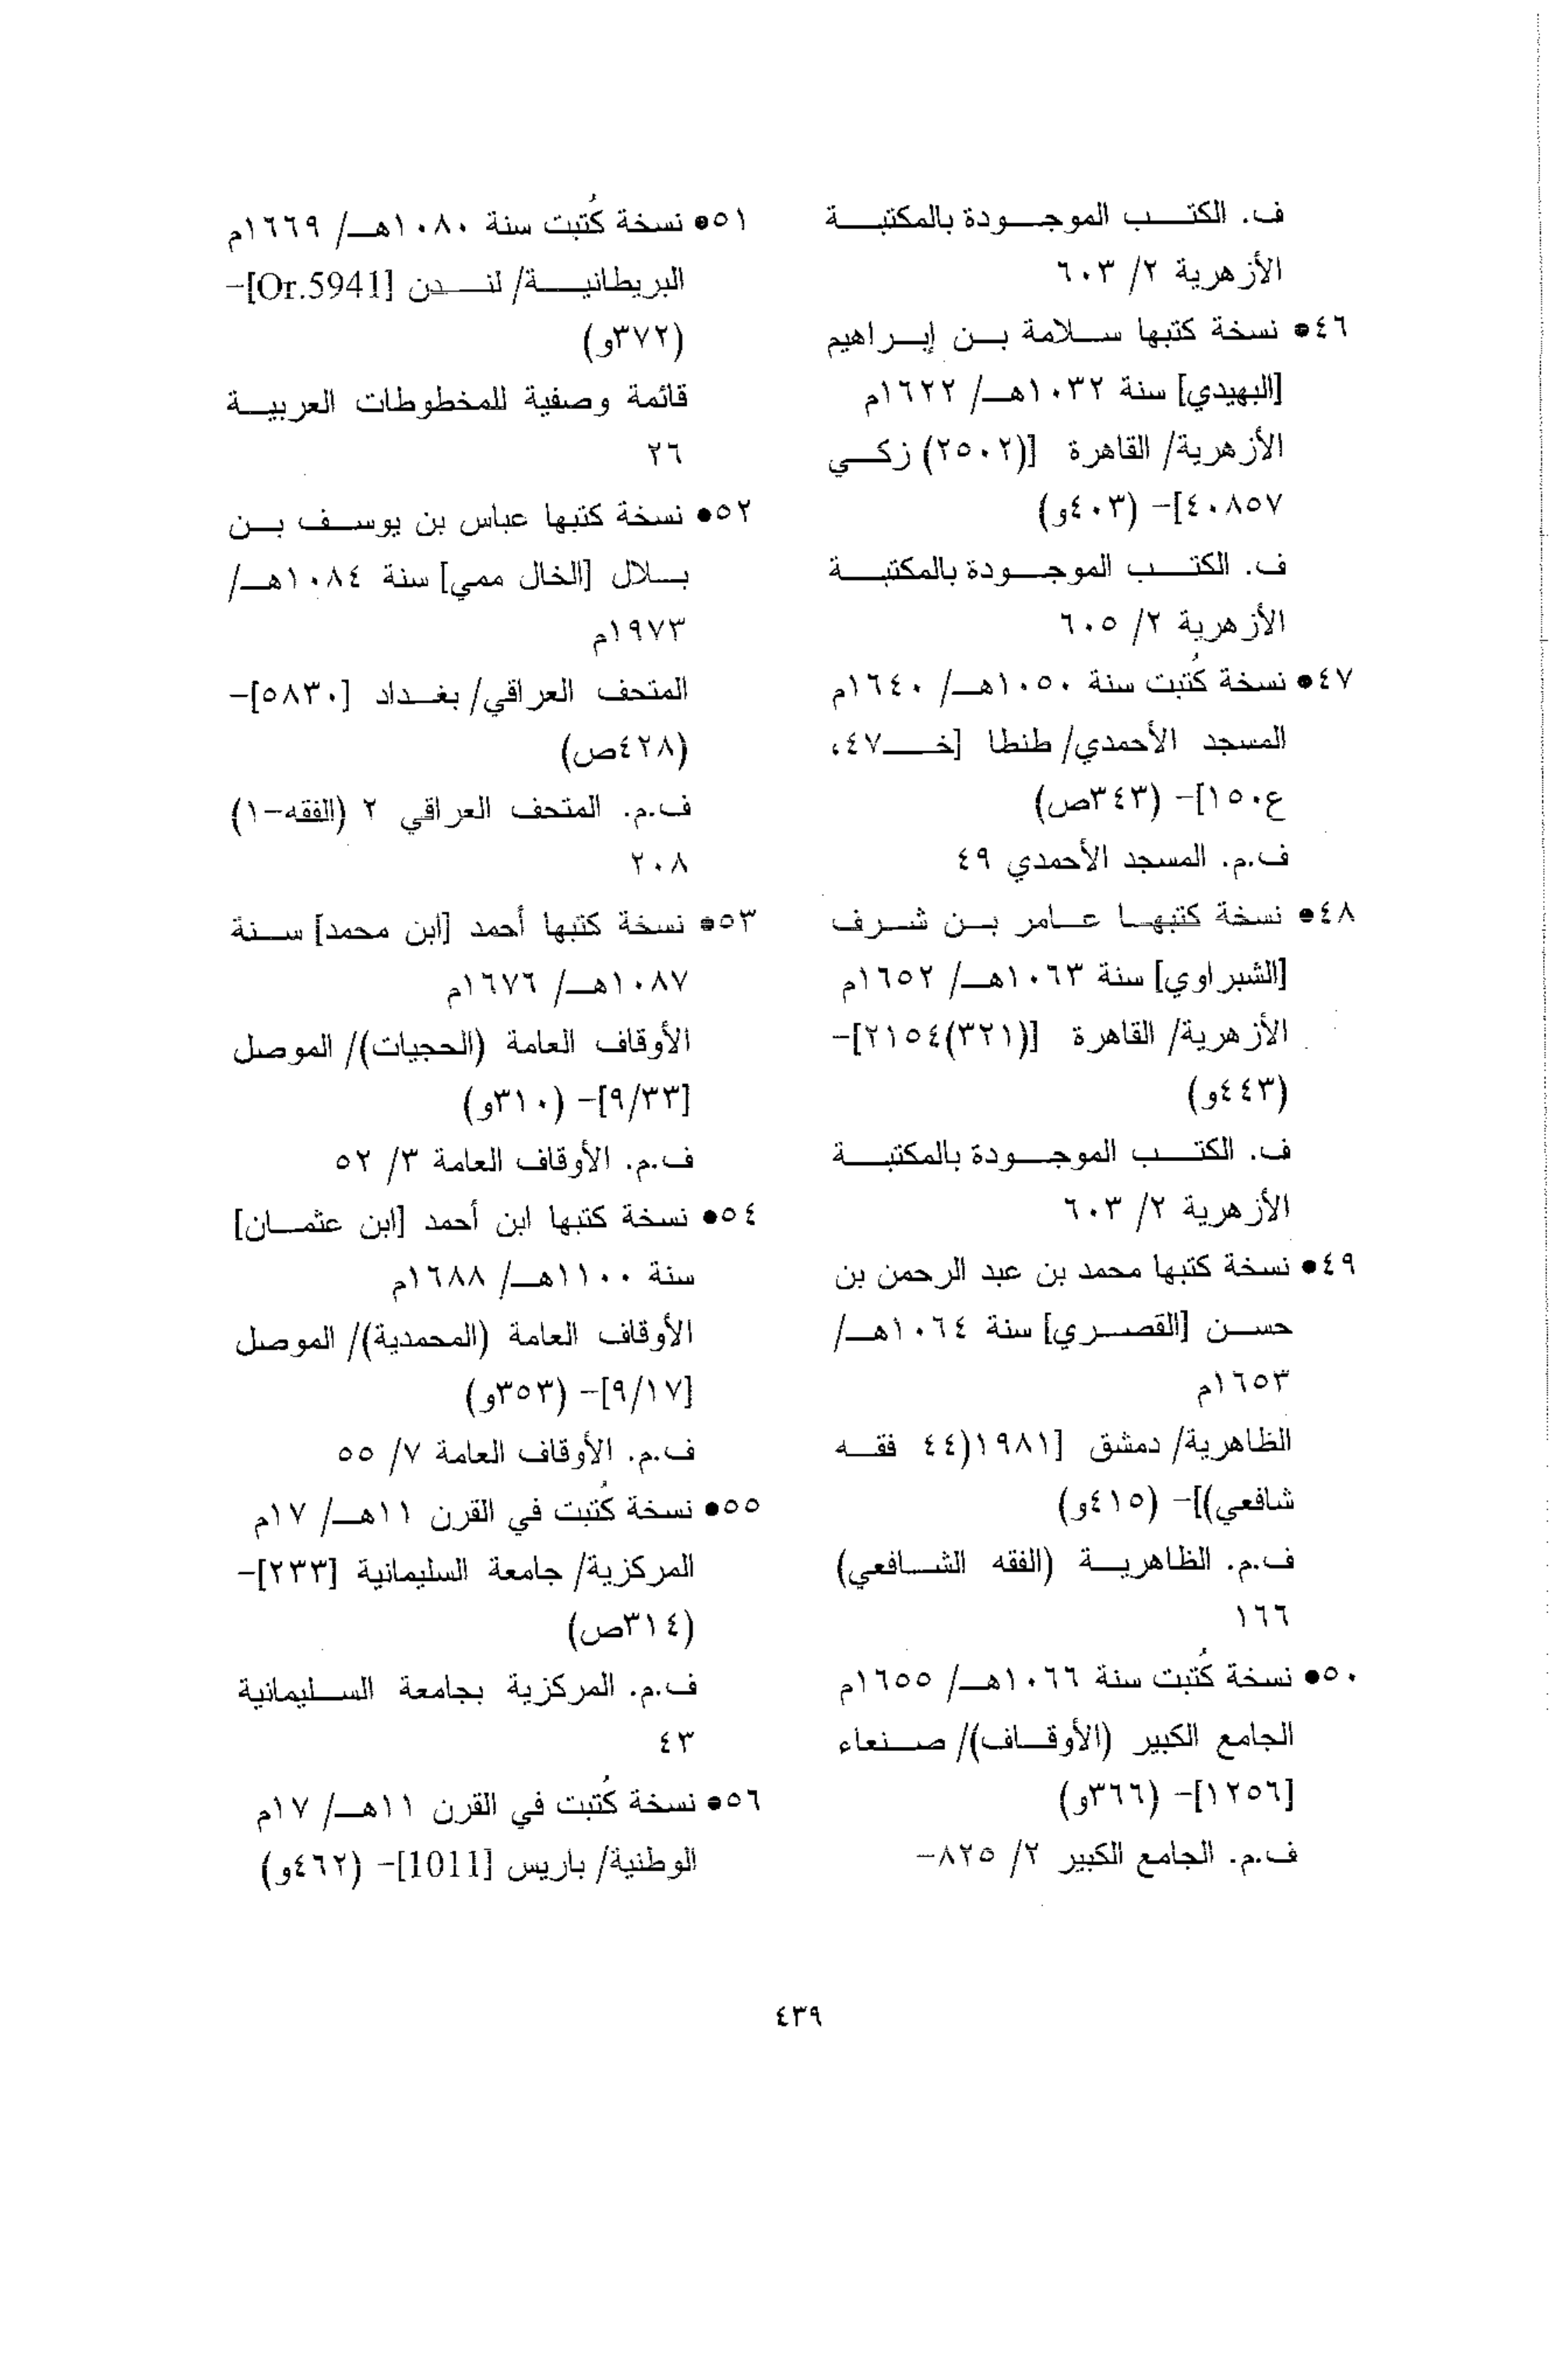 ف. الكتب الموجودة بالمكتبة
الأزهرية ٢/ ٦٠٣
٤٦• نسخة كتبها سلامة بن إبراهيم
[البهيدي] سنة ١٠٣٢هـ/ ١٦٢٢م
الأزهرية/ القاهرة [(٢٥٠٢) زكي
٤٠٨٥٧]- (٤٠٣و)
ف. الكتب الموجودة بالمكتبة
الأزهرية ٢/ ٦٠٥
٤٧• نسخة كُتبت سنة ١٠٥٠هـ/ ١٦٤٠م
المسجد الأحمدي/ طنطا [خـ٤٧،
ع١٥٠]- (٣٤٣ص)
ف.م. المسجد الأحمدي ٤٩
٤٨• نسخة كتبها عامر بن شرف
[الشبراوي] سنة ١٠٦٣هـ/ ١٦٥٢م
الأزهرية/ القاهرة [(٣٢١)٢١٥٤]-
(٤٤٣و)
ف. الكتب الموجودة بالمكتبة
الأزهرية ٢/ ٦٠٣
٤٩• نسخة كتبها محمد بن عبد الرحمن بن
حسن [القصري] سنة ١٠٦٤هـ/
١٦٥٣م
الظاهرية/ دمشق [١٩٨١(٤٤ فقه
شافعي)]- (٤١٥و)
ف.م. الظاهرية (الفقه الشافعي)
١٦٦
٥٠• نسخة كُتبت سنة ١٠٦٦هـ/ ١٦٥٥م
الجامع الكبير (الأوقاف)/ صنعاء
[١٢٥٦]- (٣٦٦و)
ف.م. الجامع الكبير ٢/ ٨٢٥-
٥١• نسخة كُتبت سنة ١٠٨٠هـ/ ١٦٦٩م
البريطانية/ لندن [Or.5941]-
(٣٧٢و)
قائمة وصفية للمخطوطات العربية
٢٦
٥٢• نسخة كتبها عباس بن يوسف بن
بلال [الخال ممي] سنة ١٠٨٤هـ/
١٩٧٣م
المتحف العراقي/ بغداد [٥٨٣٠]-
(٤٢٨ص)
ف.م. المتحف العراقي ٢ (الفقه-١)
٢٠٨
٥٣• نسخة كتبها أحمد [ابن محمد] سنة
١٠٨٧هـ/ ١٦٧٦م
الأوقاف العامة (الحجيات)/ الموصل
[٩/٣٣]- (٣١٠و)
ف.م. الأوقاف العامة ٣/ ٥٢
٥٤• نسخة كتبها ابن أحمد [ابن عثمان]
سنة ١١٠٠هـ/ ١٦٨٨م
الأوقاف العامة (المحمدية)/ الموصل
[٩/١٧]- (٣٥٣و)
ف.م. الأوقاف العامة ٧/ ٥٥
٥٥• نسخة كُتبت في القرن ١١هـ/ ١٧م
المركزية/ جامعة السليمانية [٢٣٣]-
(٣١٤ص)
ف.م. المركزية بجامعة السليمانية
٤٣
٥٦• نسخة كُتبت في القرن ١١هـ/ ١٧م
الوطنية/ باريس [1011]- (٤٦٢و)
٤٣٩